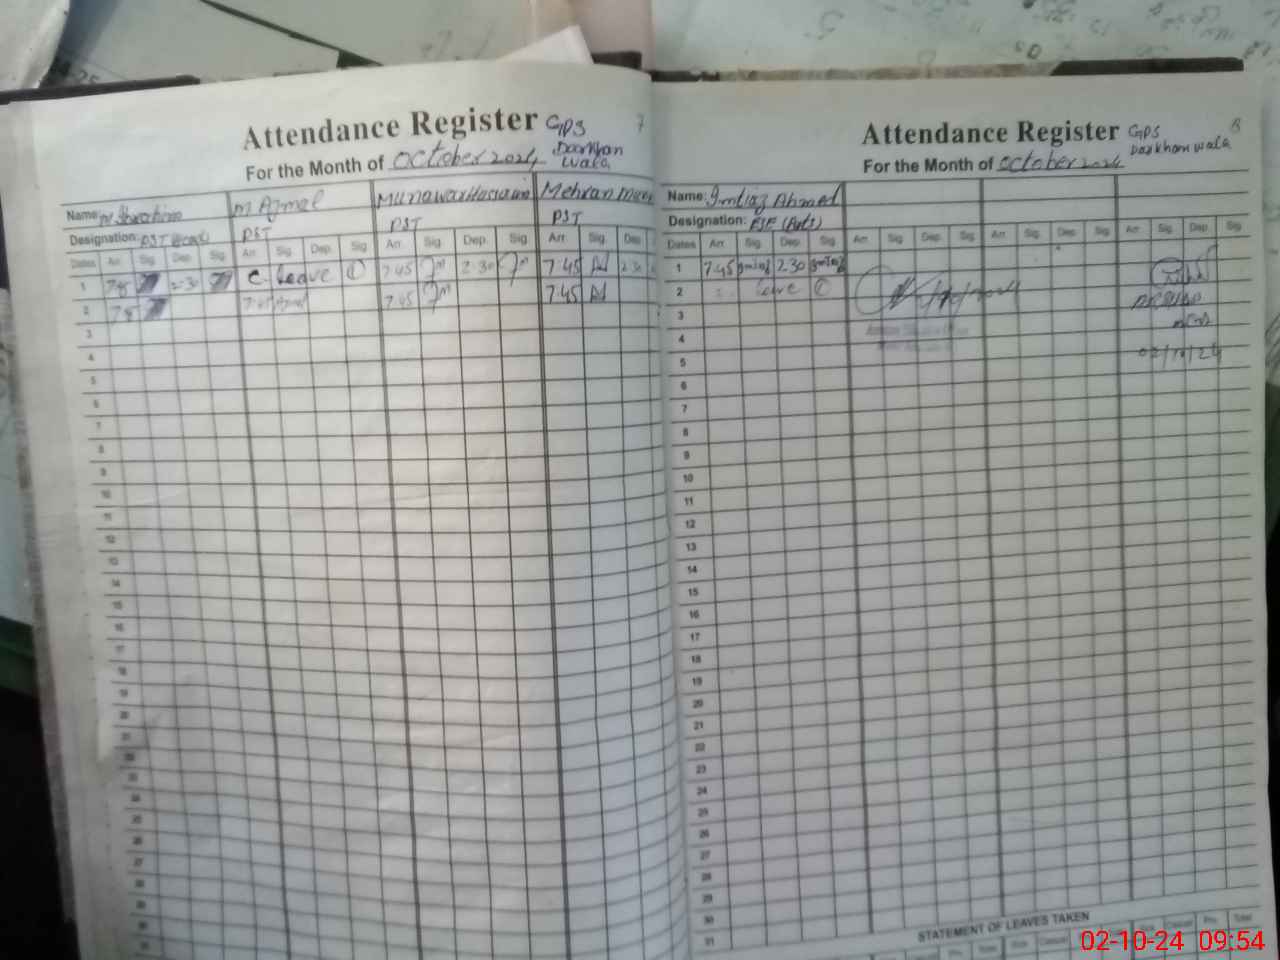 Attendance Register GPS 7
For the Month of October 2024 Darkhan
wala
Name: M Ibrahim M Ajmal Munawar Hussain Mehran
Designation: PST (Head) PST PST PST
Dates Arr. Sig. Dep. Sig. Arr. Sig. Dep. Sig. Arr. Sig. Dep. Sig. Arr. Sig. Dep.
1 2:30 C. Leave 1 7:45 2:30 7:45 2:30
2 7:45 Ajmal 7:45 7:45
3
4
5
6
7
8
9
10
11
12
13
14
15
16
17
18
19
20
21
22
23
24
25
26
27
28
29
30
31
Attendance Register GPS 8
For the Month of October 2024 Darkhan wala
Name: Imtiaz Ahmed
Designation: ESE (Arts)
Dates Arr. Sig. Dep. Sig. Arr. Sig. Dep. Sig. Arr. Sig. Dep. Sig. Arr. Sig. Dep. Sig.
1 7:45 Imtiaz 2:30 Imtiaz
2 Leave 1
3
4
5 02/10/24
6
7
8
9
10
11
12
13
14
15
16
17
18
19
20
21
22
23
24
25
26
27
28
29
30
31
STATEMENT OF LEAVES TAKEN
02-10-24 09:54